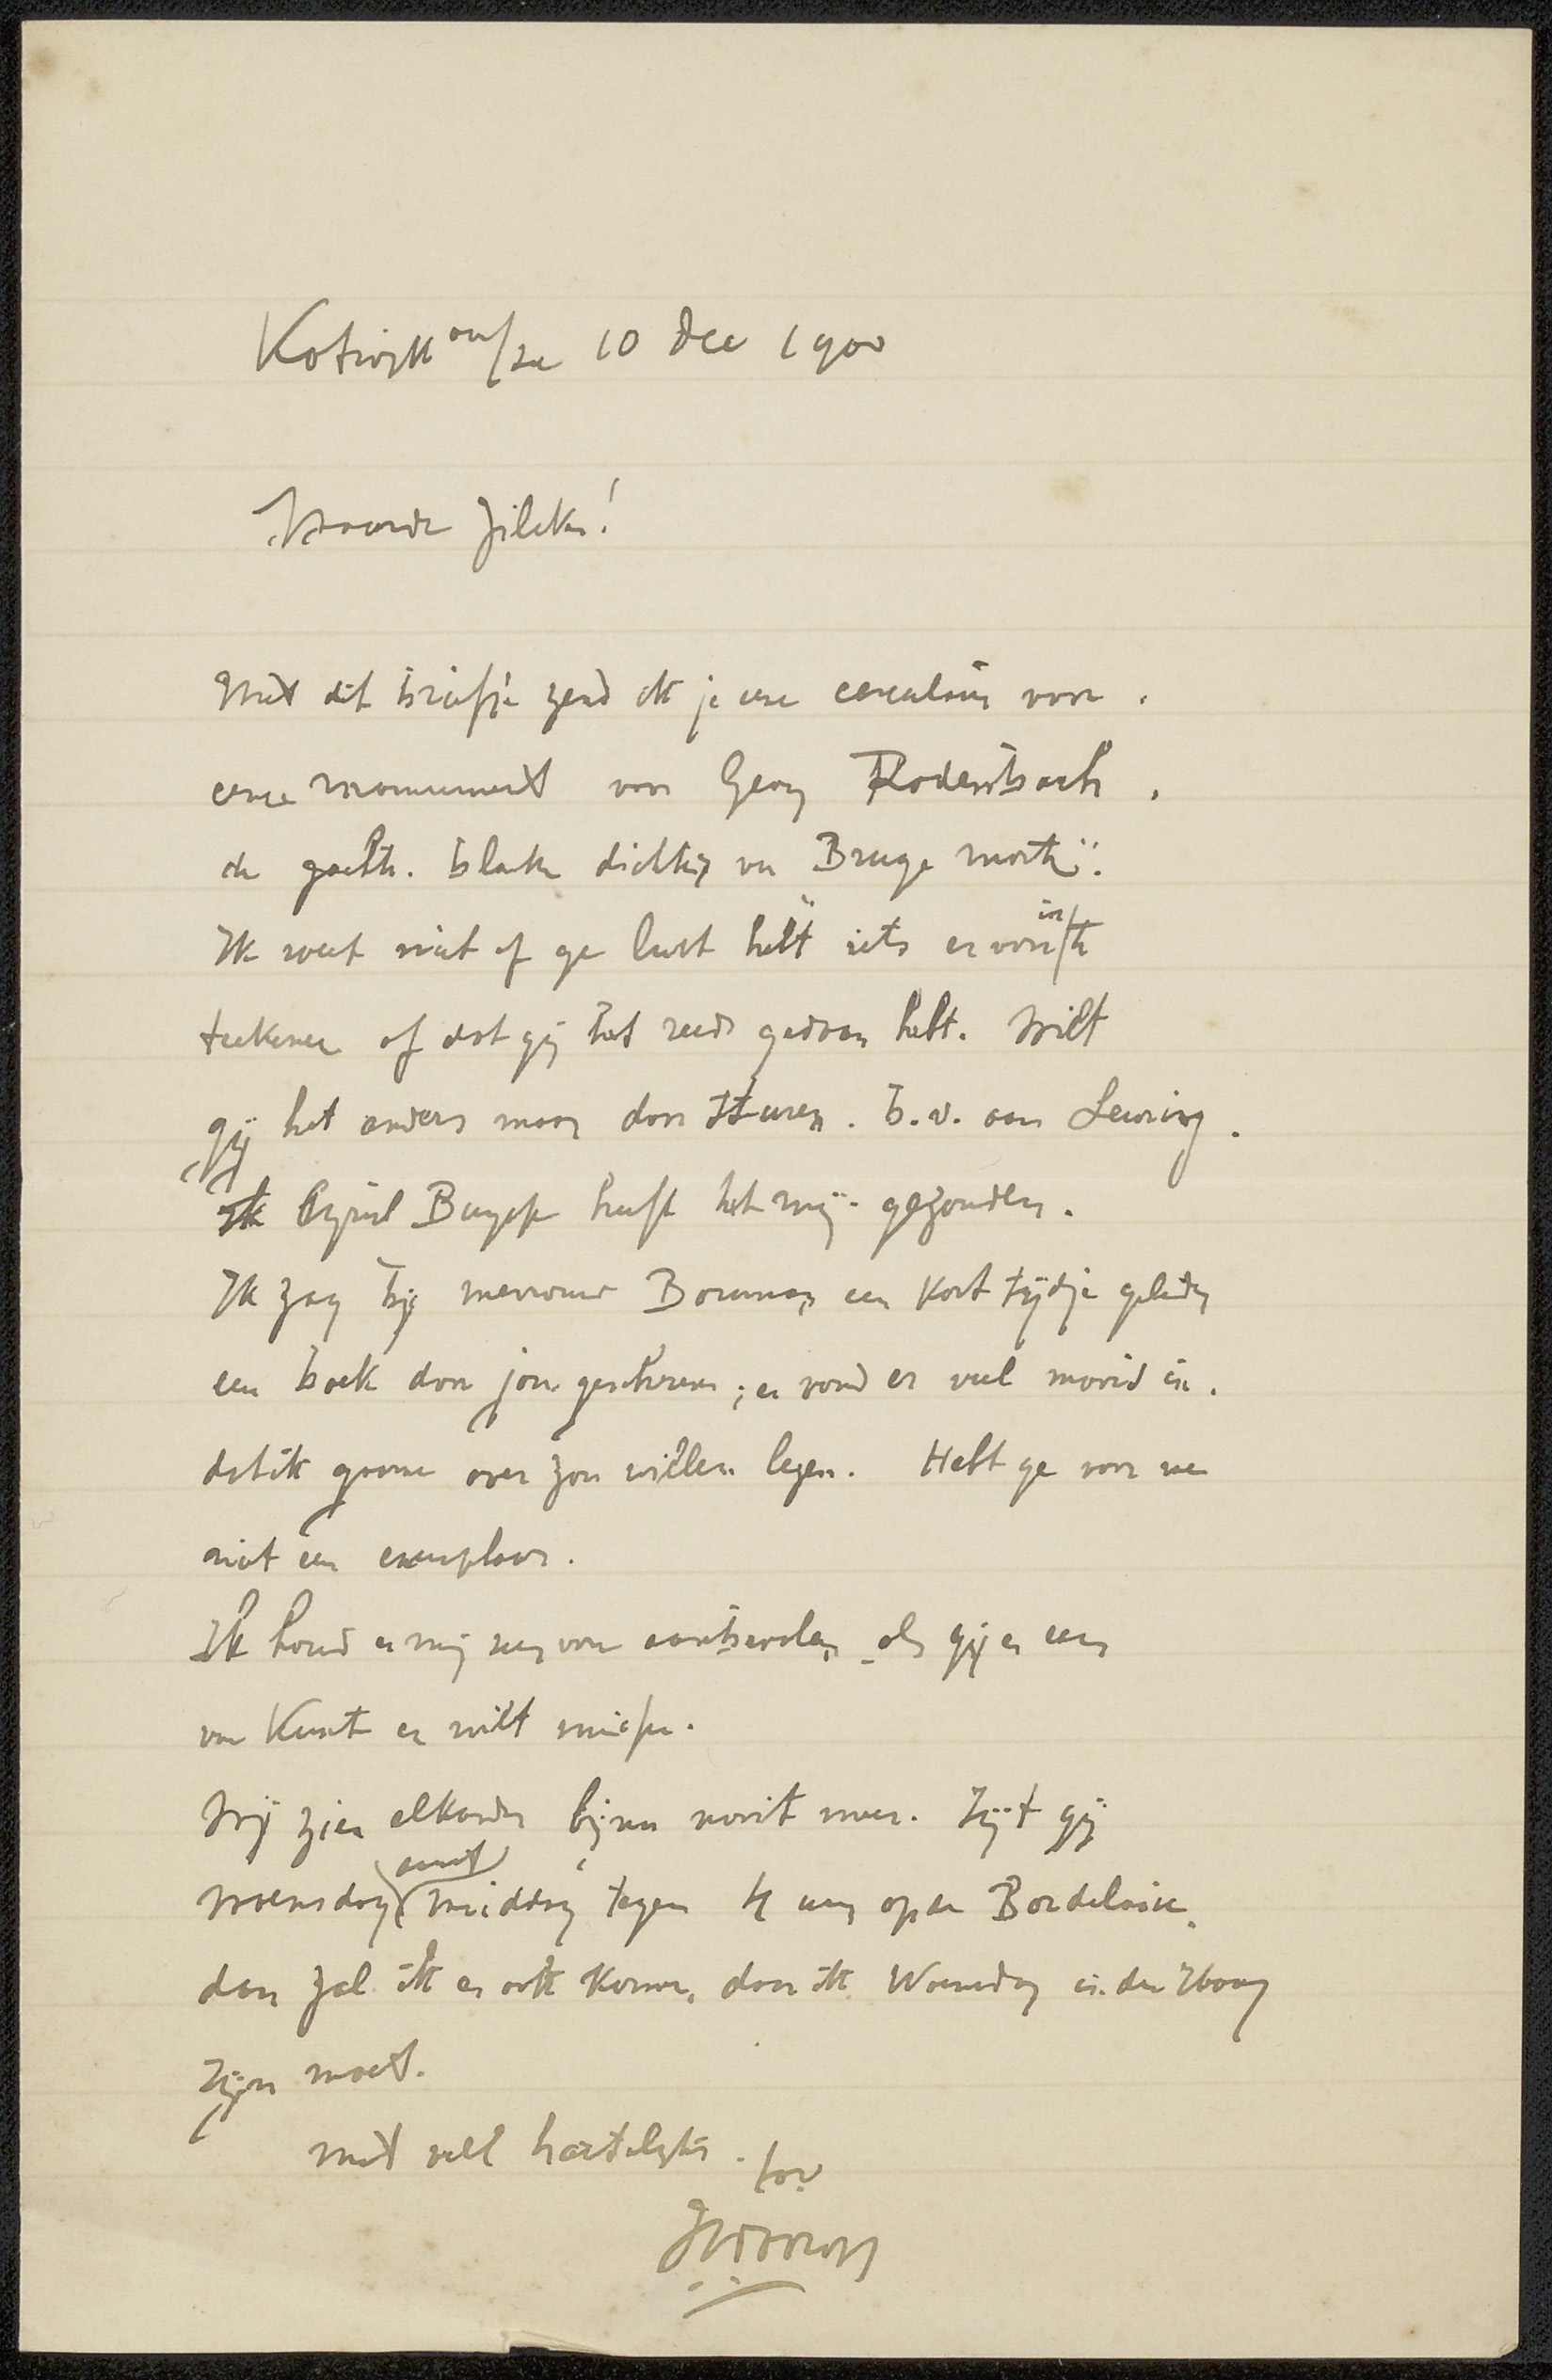 Katwijk aan/Zee 10 Dec 1900
Waarde Zilcken!
Met dit briefje zend ik je eene circulair voor
eene monument voor Georg Rodenbach,
de dichter van "Bruge morte".
Ik weet niet of ge lust hebt iets er voor in te
teekenen of dat gij het reeds gedaan hebt. Wilt
gij het anders maar door sturen. b.v. aan
Cyriel Buysse heeft het mij gezonden.
Ik zag bij mevrouw Bouman een kort tijdje geleden
een boek door jou geschreven; en vond er veel moois in,
dat ik gaarne over zou willen lezen. Hebt ge voor me
niet een exemplaar.
Ik houd er mij zeer voor aanbevolen als gij er een
van kunt en wilt missen.
Wij zien elkander bijna nooit meer. Zijt gij
Woensdag middag tegen 4 uur op de Bordelaise,
dan zal ik er ook komen, daar ik Woensdag in den Haag
zijn moet.
met veel hartelijks.
Toorop